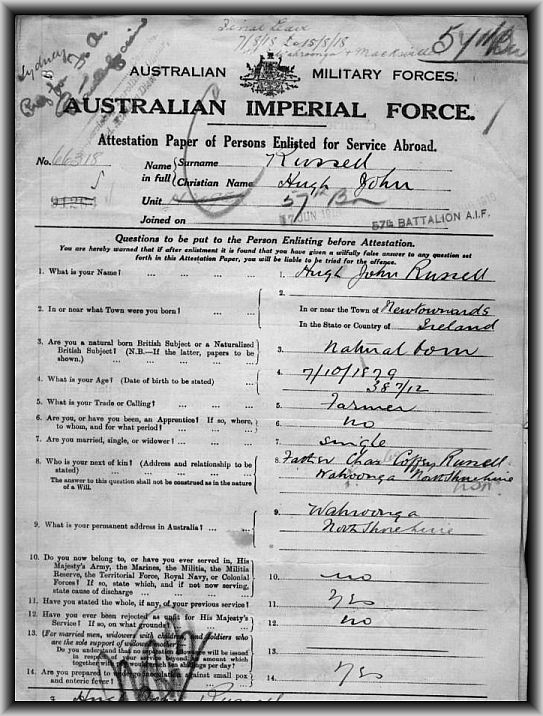 Final Leave
7/8/18 to 15/8/18
Wahroonga + Macksville
Sydney
57th Bn
AUSTRALIAN MILITARY FORCES.
AUSTRALIAN IMPERIAL FORCE.
Attestation Paper of Persons Enlisted for Service Abroad.
No. 66318
Name in full { Surname Russell
Christian Name Hugh John
Unit 57th Bn
Joined on 17 JUN 57th BATTALION A.I.F.
Questions to be put to the Person Enlisting before Attestation.
You are hereby warned that if after enlistment it is found that you have given a wilfully false answer to any question set
forth in this Attestation Paper, you will be liable to be tried for the offence.
1. What is your Name? ... ... ... 1. Hugh John Russell
2. In or near what Town were you born? ... ... 2. In or near the Town of Newtownards
In the State or Country of Ireland
3. Are you a natural born British Subject or a Naturalized
British Subject? (N.B.—If the latter, papers to be
shown.) ... ... ... 3. natural born
4. What is your Age? (Date of birth to be stated) ... 4. 7/10/1879
38 7/12
5. What is your Trade or Calling? ... ... 5. Farmer
6. Are you, or have you been, an Apprentice? If so, where,
to whom, and for what period? ... ... 6. no
7. Are you married, single, or widower? ... ... 7. single
8. Who is your next of kin? (Address and relationship to be
stated) ... 8. Father Chas Russell
The answer to this question shall not be construed as in the nature
of a Will. Wahroonga North Shore line
NSW
9. What is your permanent address in Australia? ... ... 9. Wahroonga
North Shore line
10. Do you now belong to, or have you ever served in, His
Majesty's Army, the Marines, the Militia, the Militia
Reserve, the Territorial Force, Royal Navy, or Colonial
Forces? If so, state which, and if not now serving,
state cause of discharge ... ... ... 10. no
11. Have you stated the whole, if any, of your previous service? 11. Yes
12. Have you ever been rejected as unfit for His Majesty's
Service? If so, on what grounds? 12. no
13. (For married men, widowers with children, and soldiers who
are the sole support of widowed mother.)
Do you understand that no separation allowance will be issued
in respect of your service beyond an amount which
together with pay would reach ten shillings per day? 13.
14. Are you prepared to undergo inoculation against small pox
and enteric fever? 14. Yes
Hugh John Russell